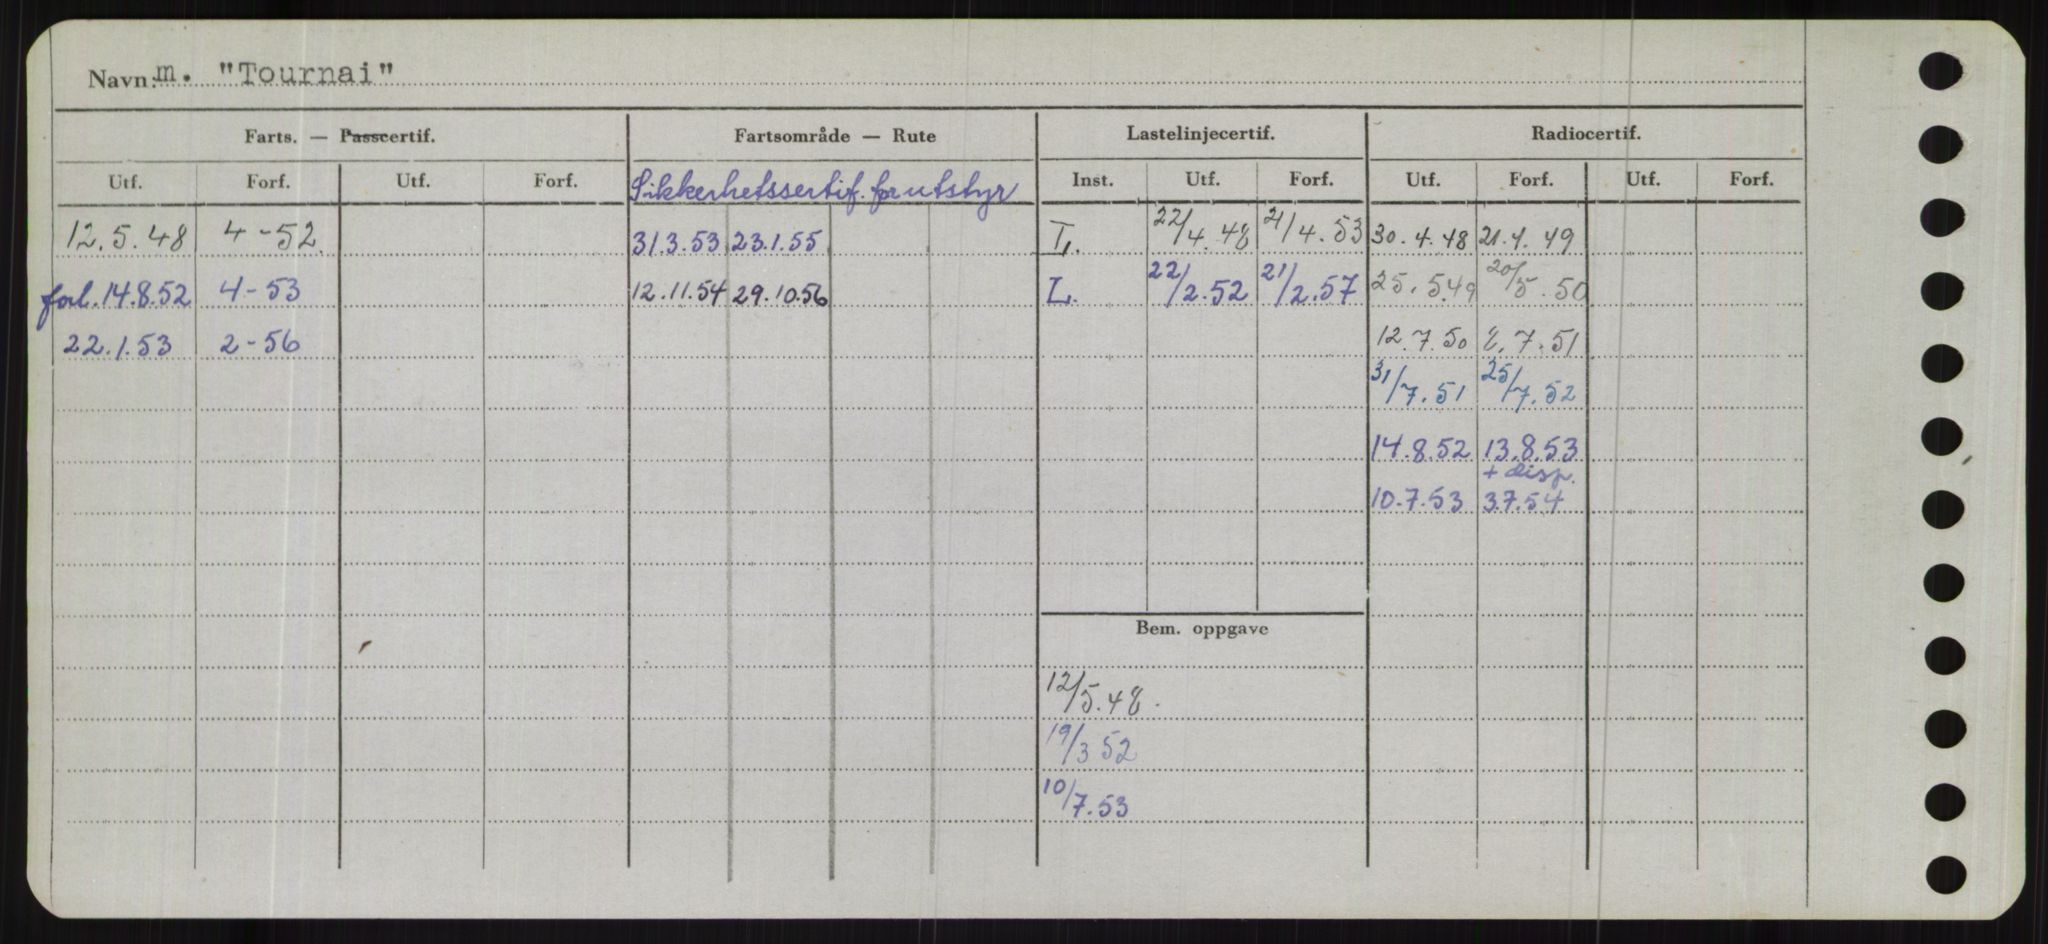 Navn: m. "Tournai"
Farts. — Passcertif. Fartsområde — Rute Lastelinjecertif. Radiocertif.
Utf. Forf. Utf. Forf. Sikkerhetssertif. for utstyr Inst. Utf. Forf. Utf. Forf. Utf. Forf.
12.5.48 4-52. 31.3.53 23.1.55 L. 22/4.48 21/4.53 30.4.48 21.4.49
forl. 14.8.52 4-53 12.11.54 29.10.56 L. 22/2.52 21/2.57 25.5.49 20/5.50
22.1.53 2-56 12.7.50 8.7.51
31/7.51 25/7.52
14.8.52 13.8.53
+ disp.
10.7.53 3.7.54
Bem. oppgave
12/5.48.
19/3 52
10/7.53